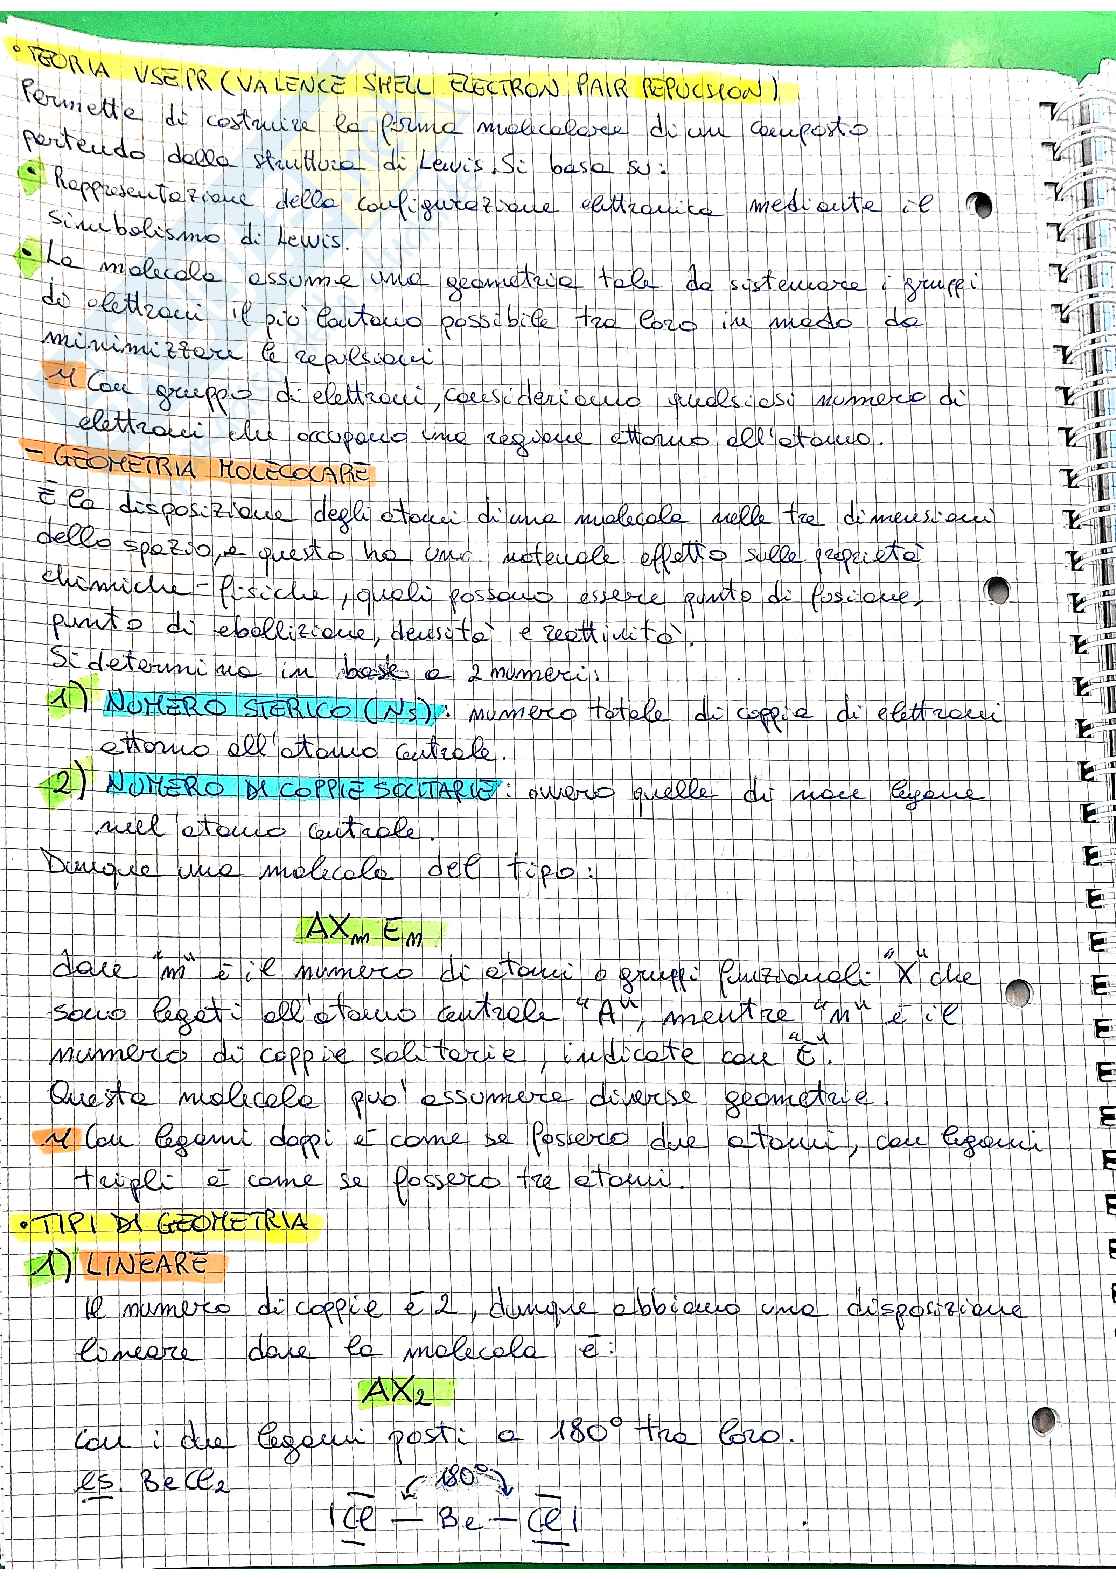 • TEORIA VSEPR (VALENCE SHELL ELECTRON PAIR REPULSION)
Permette di costruire la forma molecolare di un composto
partendo dalla struttura di Lewis. Si basa su:
• Rappresentazione della configurazione elettronica mediante il
simbolismo di Lewis.
• La molecola assume una geometria tale da sistemare i gruppi
di elettroni il più lontano possibile tra loro in modo da
minimizzare le repulsioni
Con gruppo di elettroni, consideriamo qualsiasi numero di
elettroni che occupano una regione attorno all'atomo.
- GEOMETRIA MOLECOLARE
È la disposizione degli atomi di una molecola nelle tre dimensioni
dello spazio, e questo ha una notevole effetto sulle proprietà
chimiche-fisiche, quali possono essere punto di fusione,
punto di ebollizione, densità e reattività.
Si determina in base a 2 numeri:
1) NUMERO STERICO (Ns): numero totale di coppie di elettroni
attorno all'atomo centrale.
2) NUMERO DI COPPIE SOLITARIE: ovvero quelle di non legame
nell'atomo centrale.
Dunque una molecola del tipo:
AXm En
dove "m" è il numero di atomi o gruppi funzionali "X" che
sono legati all'atomo centrale "A", mentre "n" è il
numero di coppie solitarie, indicate con "E".
Questa molecola può assumere diverse geometrie.
Con legami doppi è come se fossero due atomi, con legami
tripli è come se fossero tre atomi.
• TIPI DI GEOMETRIA
1) LINEARE
Il numero di coppie è 2, dunque abbiamo una disposizione
lineare dove la molecola è:
AX2
con i due legami posti a 180° tra loro.
es. BeCl2
180°
|Cl — Be — Cl|